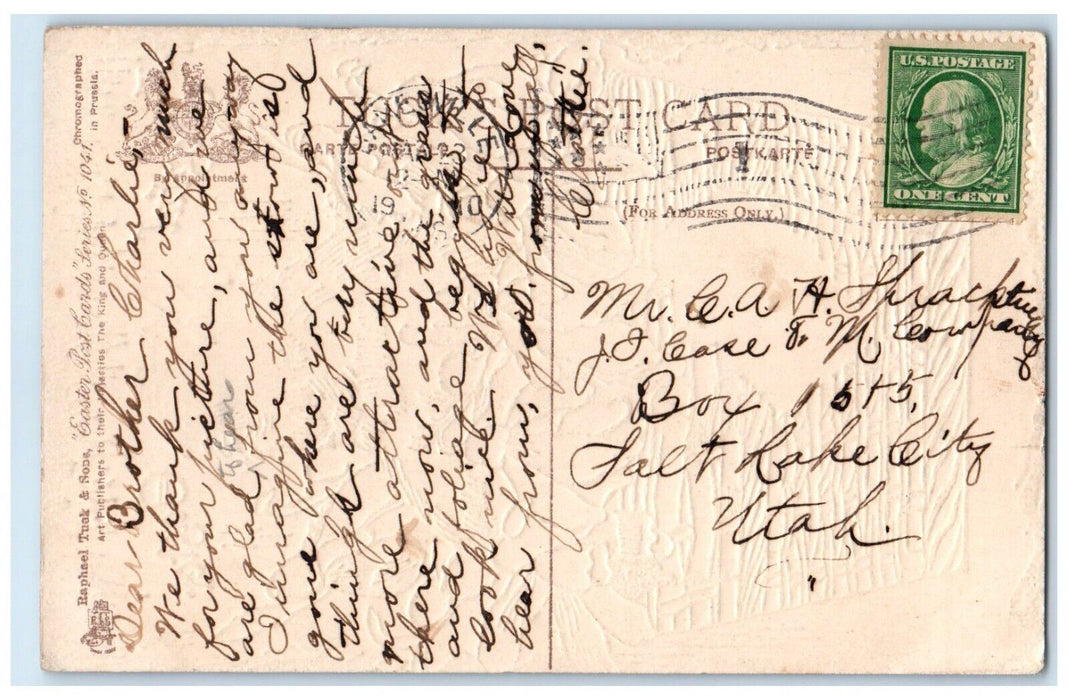 Raphael Tuck & Sons, "Easter Post Cards" Series No 1041.
Art Publishers to their Majesties The King and Queen.
Chromographed
in Prussia.
By appointment
TUCK'S POST CARD
CARTE POSTALE
POSTKARTE
(FOR ADDRESS ONLY.)
U.S. POSTAGE
ONE CENT
19 10
1
Dear Brother Charlie,-
We thank you very much
for your picture, and we
are glad to hear from you anyway
I imagine the snow is
gone where you are, and
things are very much
more attractive out
there now, and the grass
and foliage begins to
look nice. We like to
hear from you. With love
from us all,
Lottie.
Mr. C. A. H. Sprack
J. I. Case T. M. Company
Box 1515,
Salt Lake City
Utah.